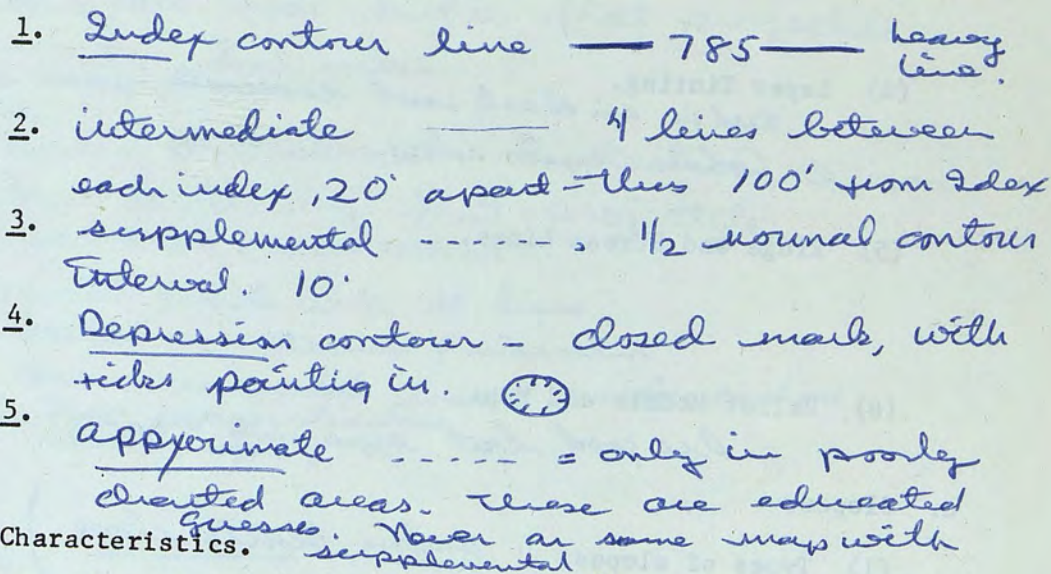 1. Index contour line — 785 — heavy line.
2. intermediate —— 4 lines between
each index, 20' apart - thus 100' from Idex
3. supplemental ------. 1/2 normal contour
Interval. 10'
4. Depression contour - closed mark, with
ticks pointing in.
5. approximate ----- = only in poorly
charted areas. These are educated
guesses. Never on same map with
supplemental
Characteristics.